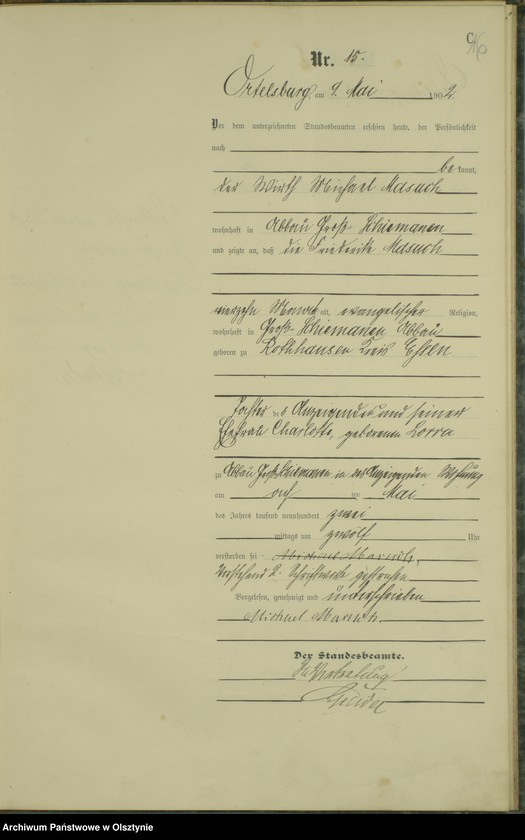 C
Nr. 15.
Ortelsburg, am 9. Mai 1902
Vor dem unterzeichneten Standesbeamten erschien heute, der Persönlichkeit
nach
bekannt,
der Wirth Michael Masuch
wohnhaft in Abbau Groß Schiemanen
und zeigte an, daß die Friederike Masuch
vierzehn Monat alt, evangelischer Religion,
wohnhaft in Groß Schiemanen Abbau
geboren zu Rotthausen Kreis Essen
Tochter des Anzeigenden und seiner
Ehefrau Charlotte, geborenen Lorra
zu Abbau Groß Schiemanen in des Anzeigenden Wohnung
am Mai
des Jahres tausend neunhundert zwei
mittags um zwölf Uhr
verstorben sei.
Vorstehend 2 Schriftworte gestrichen
Vorgelesen, genehmigt und unterschrieben
Michael Masuch.
Der Standesbeamte.
In Vertretung
Archiwum Państwowe w Olsztynie